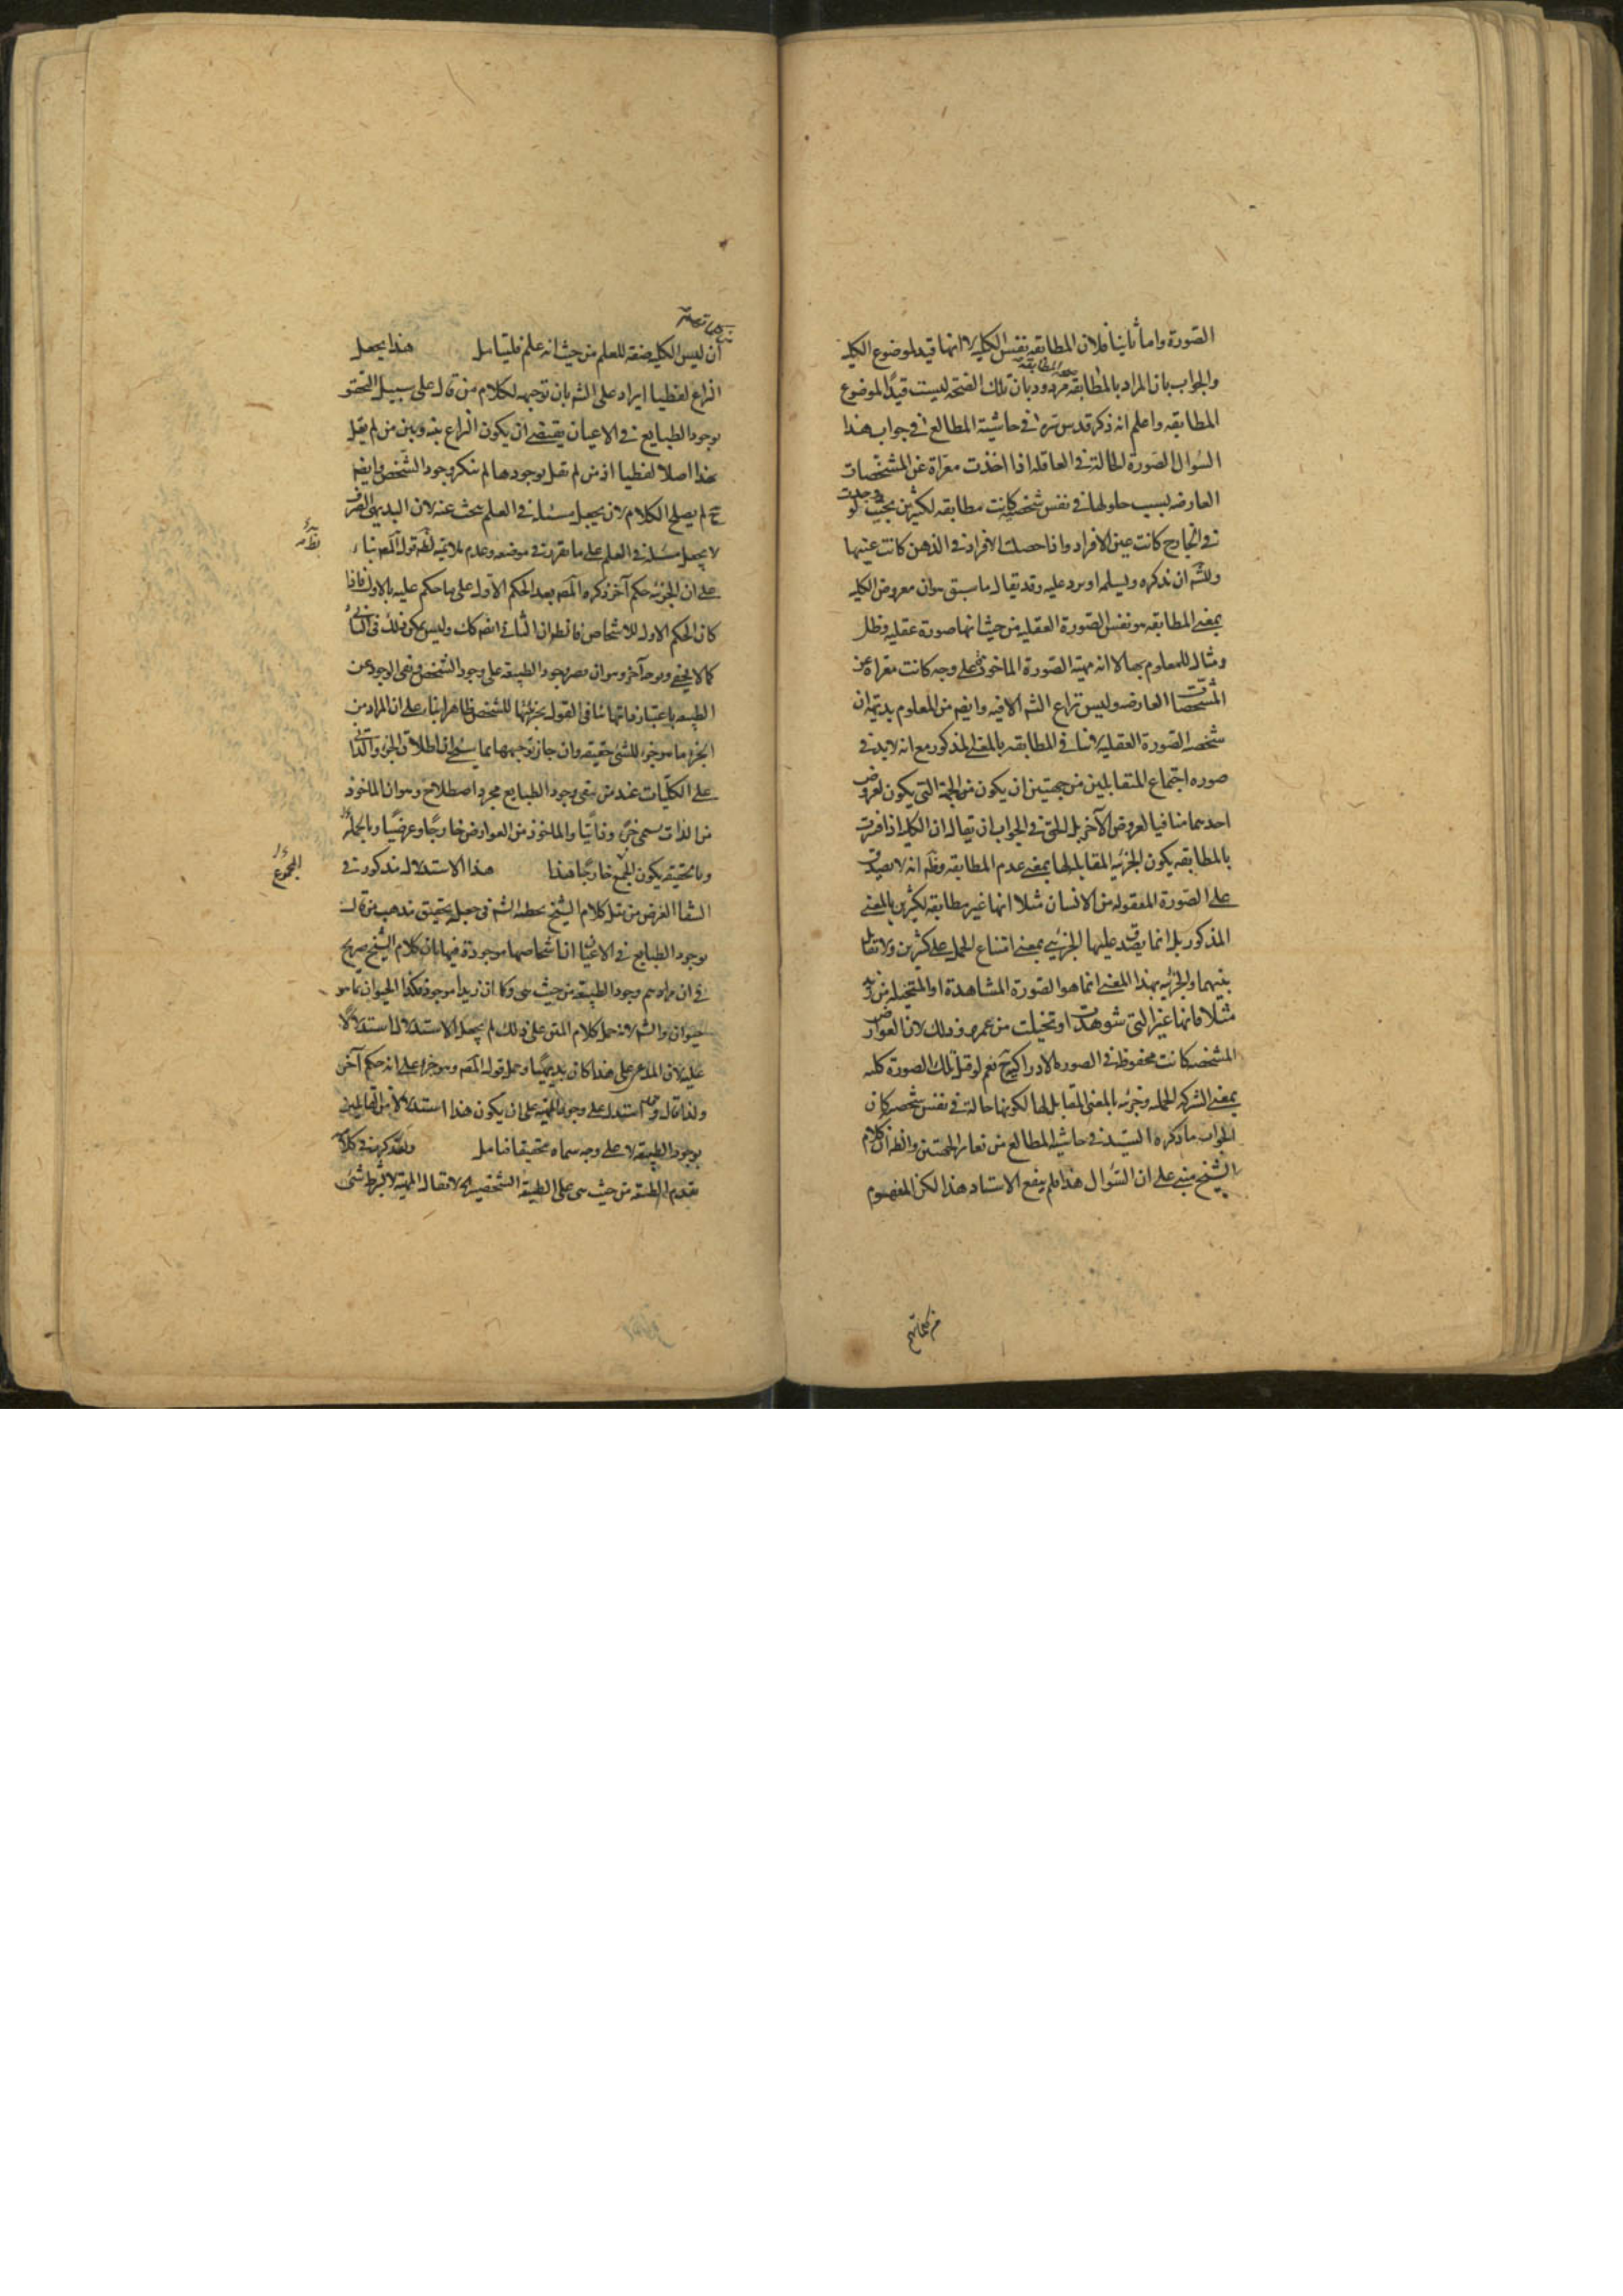 الصورة واما ثانيا فلان المطابقه نفس الكليه لا انها قيد لموضوع الكليه
والجواب بان المراد بالمطابقه مردود بان تلك الصحه ليست قيدا لموضوع
المطابقه واعلم انه ذكر قدس سره في حاشية المطالع في جواب هذا
السؤال الصورة الحالة في العاقله اذا اخذت معراة عن المشخصات
العارضه بسبب حلولها في نفس شخصيه كانت مطابقه لكثيرين بحيث لو وجدت
في الخارج كانت عين الافراد واذا حصلت الافراد في الذهن كانت عينها
وللش ان نذكره ويسلمه او يرد عليه وقد يقال ما سبق هو ان معروض الكليه
بمعنى المطابقه هو نفس الصورة العقليه من حيث انها صورة عقليه وظل
ومثال للمعلوم بها لا انه مهية الصورة الماخوذة على وجه كانت معراة عن
المشخصات العارضه وليس نزاع الش الا فيه وايضم من المعلوم بديهة ان
شخصيه الصورة العقليه لا تنافي المطابقه بالمعنى المذكور مع انه لا بد في
صوره اجتماع المتقابلين من جهتين ان يكون من الجهة التي يكون لعروض
احديهما منافيا لعروض الآخر بل الحق في الجواب ان يقال ان الكليه اذا فسرت
بالمطابقه يكون الجزئيه المقابله لها بمعنى عدم المطابقه وظ انه لا يصدق
على الصورة المعقوله من الانسان مثلا انها غير مطابقه لكثيرين بالمعنى
المذكور بل انما يصدق عليها الجزئيه بمعنى امتناع الحمل على كثيرين ولا تقابل
بينهما والجزئيه بهذا المعنى انما هو الصورة المشاهدة او المتخيله من زيد
مثلا فانها غير التي شوهدت او تخيلت من عمرو وذلك لان العوارض
المشخصه كانت محفوظه في الصوره الادراكية نعم لو قيل تلك الصورة كليه
بمعنى الشركه للحمليه وجزئيه بالمعنى المقابل لها لكونها حالة في نفس شخصيه كان
الجواب ما ذكره السيد في حاشية المطالع من تغاير الجهتين والظ ان كلام
الشيخ مبني على ان السؤال هذا فلم ينفع الاستاد هذا لكن المفهوم
من كلماتهم
ان ليس الكليه صفة للعلم من حيث انه علم فليتامل هذا يجعل
النزاع لفظيا ايراد على الش بان توجيهه لكلام من قال على سبيل التحقيق
بوجود الطبايع في الاعيان يقتضي ان يكون النزاع بينه وبين من لم يقل
بهذا اصلا لفظيا اذ من لم يقل بوجودها لم ينكر وجود الشخص وايضم
ح لم يصلح الكلام لان يجعل مسئله في العلم يبحث عنه لان البديهي الصرف
لا يجعل مسئله في العلم على ما تقرر في موضعه وعدم ملايمته لقول المص بناء
على ان الجزئيه حكم آخر ذكره المص بعد الحكم الاول على ما حكم عليه بالاول فاذا
كان الحكم الاول للاشخاص فالظ ان الثاني ايضم كك وليس يمكن ذلك في الثاني
كما لا يخفى وبوجه آخر وهو ان قصر وجود الطبيعه على وجود الشخص ونفى الوجود عن
الطبيعه باعتبار ذاتها ينافي القول بجزئيتها للشخص ظاهرا بناء على ان المراد من
الجزء ما هو جزء للشئ حقيقه وان جاز توجيهها بما
على الكليات عند من ينفي وجود الطبايع مجرد اصطلاح وهو ان الماخوذ
من الذات يسمى جزءا وذاتيا والماخوذ من العوارض خارجا وعرضيا وبالجمله
وبالحقيقه يكون الجميع خارجا هذا هذا الاستدلال مذكور في
المجموع
الشفا الغرض من نقل كلام الشيخ تخطئه الش في جعل تحقيق مذهب من قال
بوجود الطبايع في الاعيان ان اشخاصها موجودة فيها بان كلام الشيخ صريح
في ان مرادهم وجود الطبيعه من حيث هي وكما ان زيدا موجود فكذا الحيوان بما هو
حيوان والش لانه حمل كلام المتن على ذلك لم يجعل الاستدلال استدلالا
عليه لان المدعى على هذا كان بديهيا وحمل قول المص وهو جزء على انه حكم آخر
ولذا قال وقد استدل على وجود المهية على ان يكون هذا استدلالا من القائلين
بوجود الطبيعه لا على وجه سماه تحقيقا فتامل ولقد كرر في كلامه
بتقدم الطبيعه من حيث هي على الطبيعة الشخصيه لا يقال المهية لا بشرط شئ